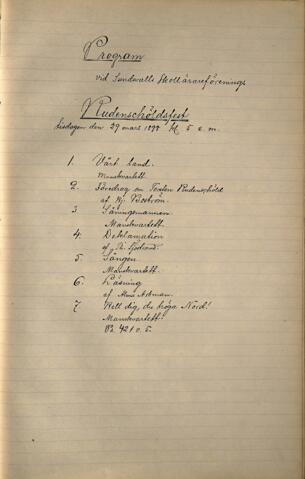 Program
vid Sundwalls Skollärareförenings
Rudenschöldsfest
tisdagen den 29 mars 1898 kl. 5 e. m.
1. Vårt land.
Manskvartett.
2. Föredrag om Torsten Rudenschöld
af Hj. Boström.
3. Såningsmannen
Manskvartett.
4. Deklamation
af
5. Sången
Manskvartett.
6. Läsning
af Alma Askman.
7. Hell dig, du höga Nord!
Manskvartett.
Ps. 421 v. 5.